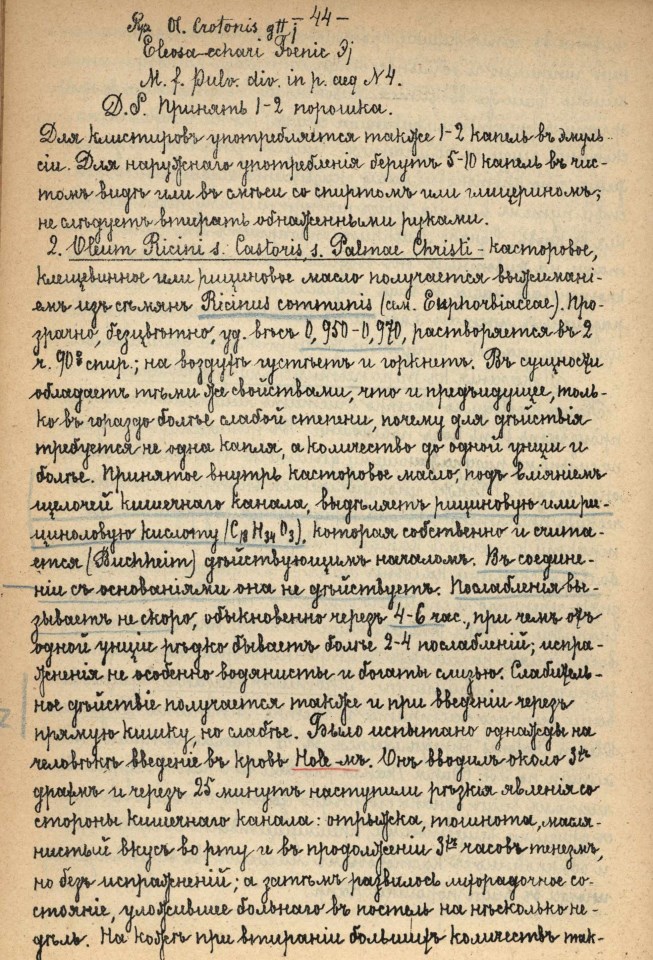 — 44 —
Rp. Ol. Crotonis gtt j
Eleosacchari Foenic ʒj
M. f. Pulv. div. in p. aeq N 4.
D. S. Принять 1-2 порошка.
Для клистировъ употребляется также 1-2 капель въ эмуль-
сіи. Для наружнаго употребленія берутъ 5-10 капель въ чис-
томъ видѣ или въ смѣси со спиртомъ или глицериномъ;
не слѣдуетъ втирать обнаженными руками.
2. Oleum Ricini s. Castoris, s. Palmae Christi - касторовое,
клещевинное или рициновое масло получается выжимані-
емъ изъ сѣмянъ Ricinus communis (сем. Euphorbiaceae). Про-
зрачно, безцвѣтно, уд. вѣсъ 0,950-0,970, растворяется въ 2
ч. 90° спир.; на воздухѣ густѣетъ и горкнетъ. Въ сущности
обладаетъ тѣми же свойствами, что и предъидущее, толь-
ко въ гораздо болѣе слабой степени, почему для дѣйствія
требуется не одна капля, а количество до одной унціи и
болѣе. Принятое внутрь касторовое масло, подъ вліяніемъ
щелочей кишечнаго канала, выдѣляетъ рициновую или ри-
циноловую кислоту (C18 H34 O3), которая собственно и счита-
ется (Buchheim) дѣйствующимъ началомъ. Въ соедине-
ніи съ основаніями она не дѣйствуетъ. Послабленія вы-
зываетъ не скоро, обыкновенно черезъ 4-6 час., при чемъ отъ
одной унціи рѣдко бываетъ болѣе 2-4 послабленій; испра-
жненія не особенно водянисты и богаты слизью. Слабитель-
ное дѣйствіе получается также и при введеніи черезъ
прямую кишку, но слабѣе. Было испытано однажды на
человѣкѣ введеніе въ кровь Hole-мъ. Онъ вводилъ около 3хъ
драхмъ и черезъ 25 минутъ наступили рѣзкія явленія со
стороны кишечнаго канала: отрыжка, тошнота, масля-
нистый вкусъ во рту и въ продолженіи 3хъ часовъ тенезмъ,
но безъ испражненій; а затѣмъ развилось лихорадочное со-
стояніе, уложившее больнаго въ постель на нѣсколько не-
дѣль. На кожѣ при втираніи большихъ количествъ так-